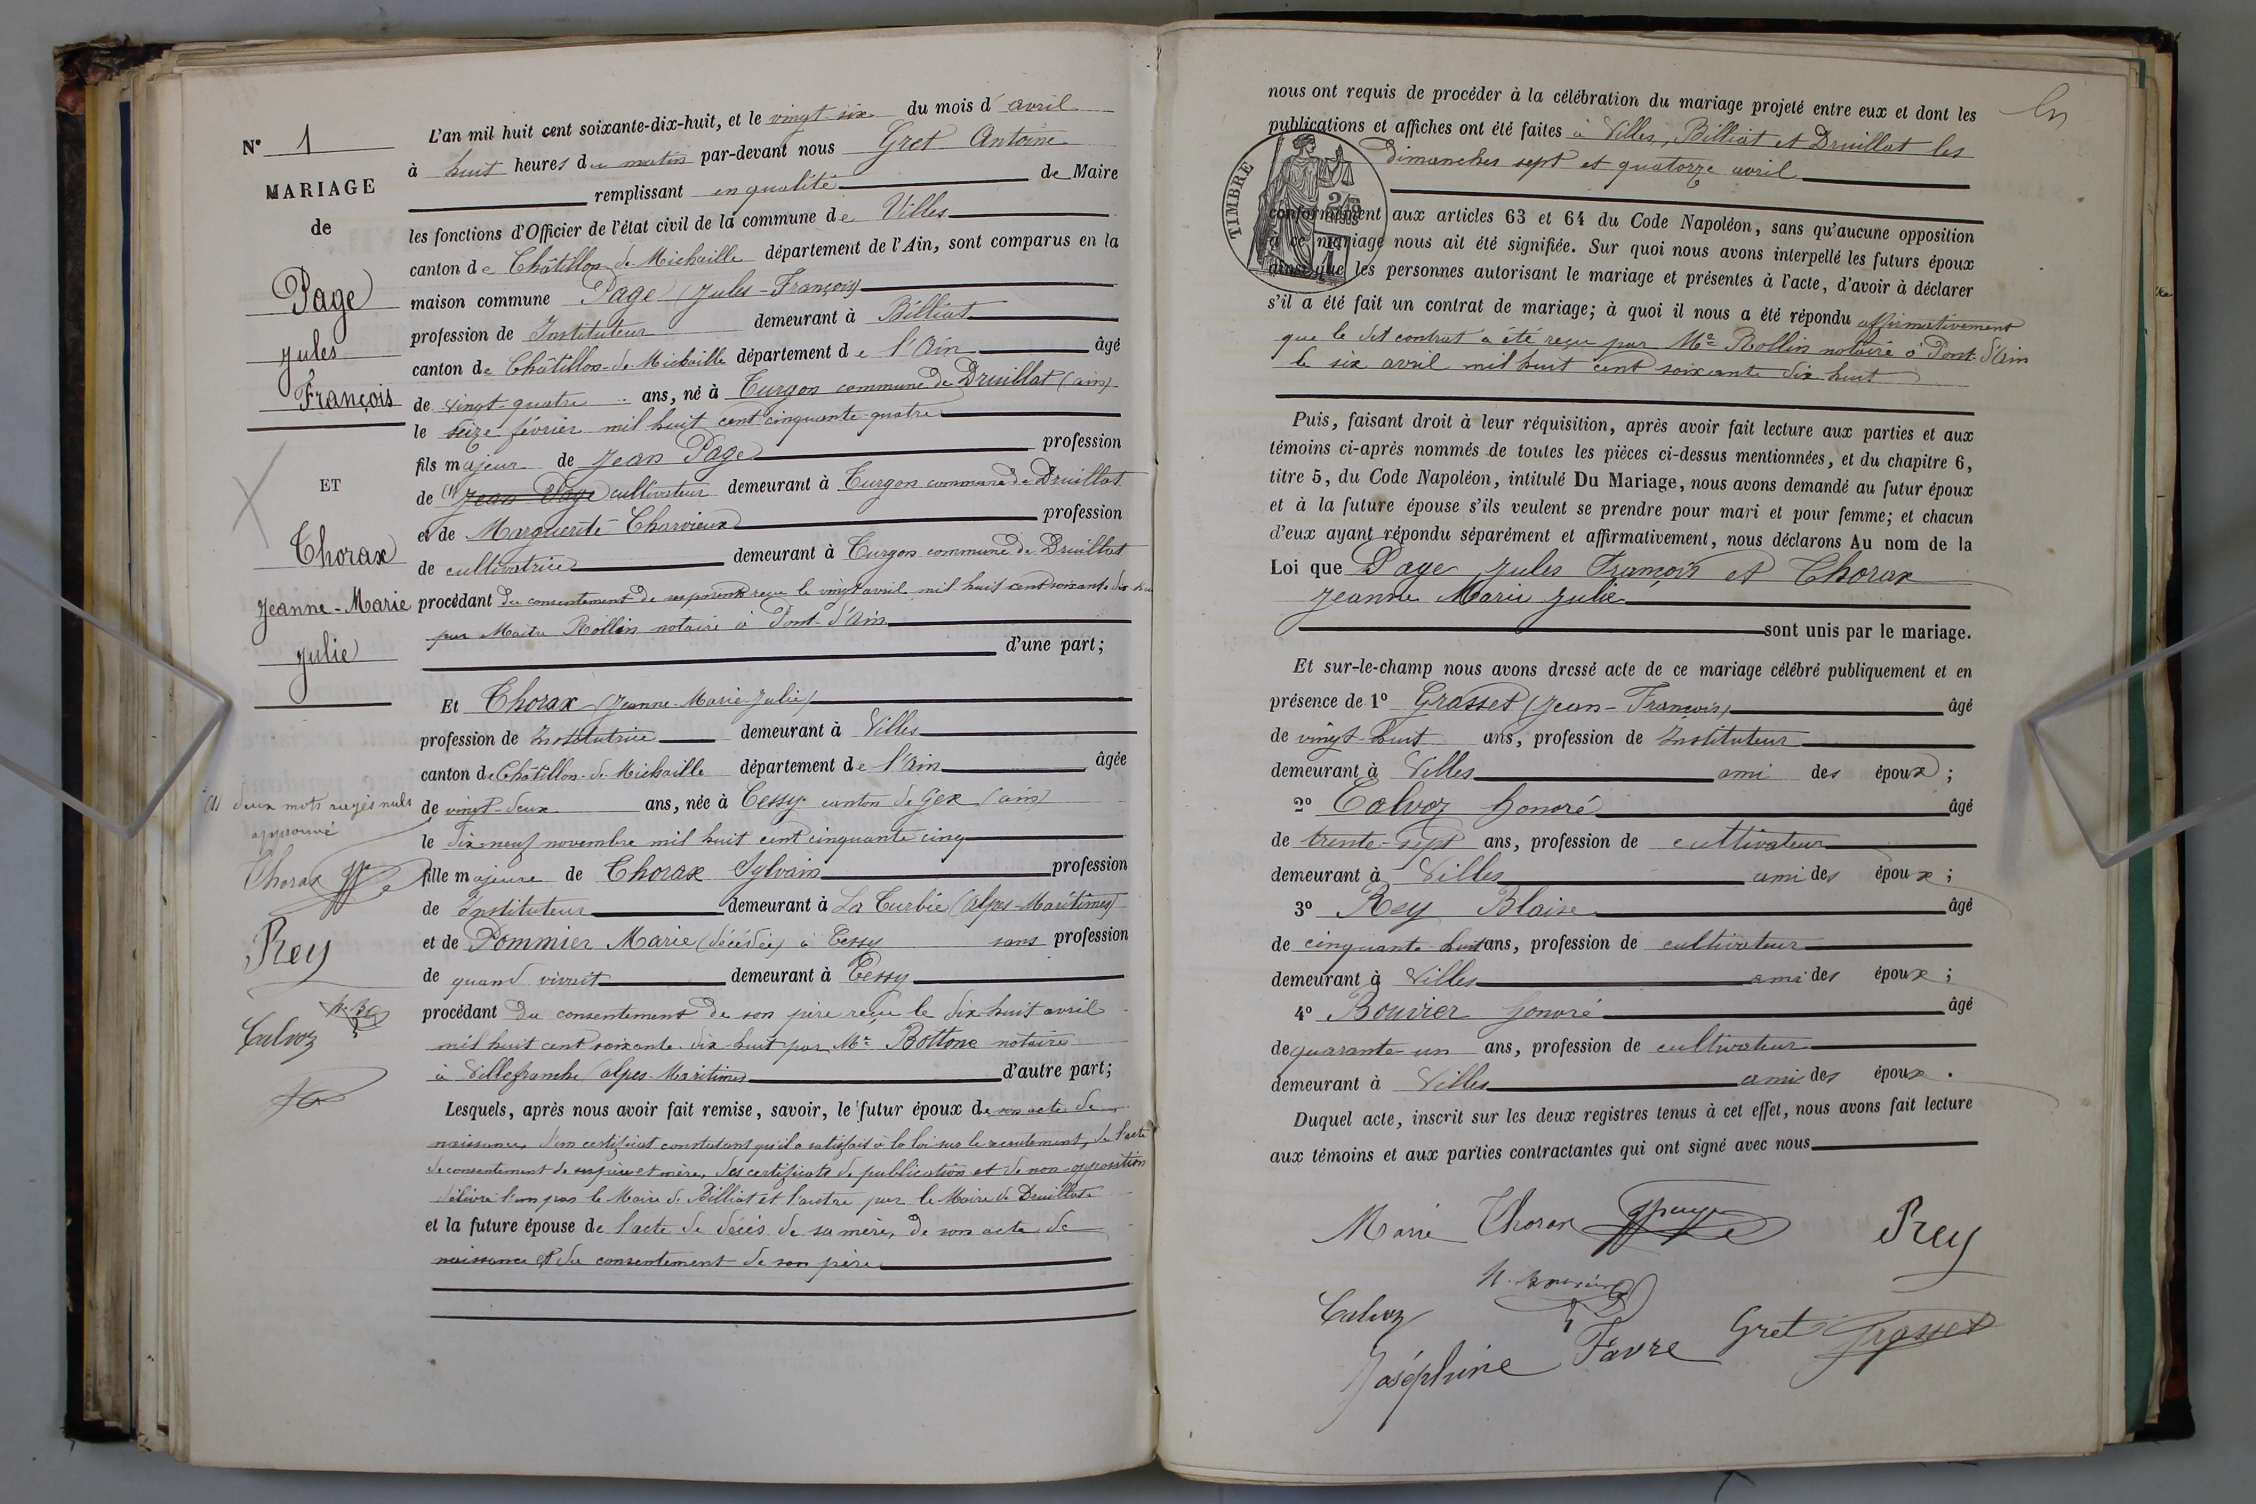 N° 1
MARIAGE
de
Page
Jules
François
ET
Thorax
Jeanne-Marie
Julie
(1) deux mots rayés nuls
approuvé
Thorax
Rey
Calvoz
L'an mil huit cent soixante-dix-huit, et le vingt-six du mois d'avril
à huit heures du matin par-devant nous Gret Antoine
remplissant en qualité de Maire
les fonctions d'Officier de l'état civil de la commune de Villes
canton de Châtillon-de-Michaille département de l'Ain, sont comparus en la
maison commune Page (Jules-François)
profession de Instituteur demeurant à Billiat
canton de Châtillon-de-Michaille département de l'Ain âgé
de vingt-quatre ans, né à Turgon commune de Druillat (ain)
le seize février mil huit cent cinquante-quatre
fils majeur de Jean Page profession
de (1) Jean Page cultivateur demeurant à Turgon commune de Druillat
et de Marguerite Charvieux profession
de cultivatrice demeurant à Turgon commune de Druillat
procédant du consentement de ses parents reçu le vingt avril mil huit cent soixante dix huit
par Maître Rollin notaire à Pont-d'Ain
d'une part;
Et Thorax (Jeanne-Marie-Julie)
profession de Institutrice demeurant à Villes
canton de Châtillon-de-Michaille département de l'Ain âgée
de vingt-deux ans, née à Cessy canton de Gex (ain)
le dix-neuf novembre mil huit cent cinquante cinq
fille majeure de Thorax Sylvain profession
de instituteur demeurant à La Turbie (Alpes-Maritimes)
et de Pommier Marie (décédée) à Cessy sans profession
de quand vivait demeurant à Cessy
procédant du consentement de son père reçu le dix huit avril
mil huit cent soixante-dix-huit par Me Bottone notaire
à Villefranche (alpes-Maritimes) d'autre part;
Lesquels, après nous avoir fait remise, savoir, le futur époux de son acte de
naissance, d'un certificat constatant qu'il a satisfait à la loi sur le recrutement, de l'acte
de consentement de ses père et mère, des certificats de publication et de non-opposition
délivré l'un par le Maire de Billiat et l'autre par le Maire de Druillat
et la future épouse de l'acte de décès de sa mère, de son acte de
naissance et du consentement de son père
nous ont requis de procéder à la célébration du mariage projeté entre eux et dont les
publications et affiches ont été faites à Villes, Billiat et Druillat les
dimanches sept et quatorze avril
TIMBRE
conformément aux articles 63 et 64 du Code Napoléon, sans qu'aucune opposition
à ce mariage nous ait été signifiée. Sur quoi nous avons interpellé les futurs époux
ainsi que les personnes autorisant le mariage et présentes à l'acte, d'avoir à déclarer
s'il a été fait un contrat de mariage; à quoi il nous a été répondu affirmativement
que le dit contrat a été reçu par Me Rollin notaire à Pont-d'Ain
le six avril mil huit cent soixante dix huit
Puis, faisant droit à leur réquisition, après avoir fait lecture aux parties et aux
témoins ci-après nommés de toutes les pièces ci-dessus mentionnées, et du chapitre 6,
titre 5, du Code Napoléon, intitulé Du Mariage, nous avons demandé au futur époux
et à la future épouse s'ils veulent se prendre pour mari et pour femme; et chacun
d'eux ayant répondu séparément et affirmativement, nous déclarons Au nom de la
Loi que Page Jules François et Thorax
Jeanne Marie Julie
sont unis par le mariage.
Et sur-le-champ nous avons dressé acte de ce mariage célébré publiquement et en
présence de 1° Grasset (Jean-François) âgé
de vingt-huit ans, profession de Instituteur
demeurant à Villes ami des époux;
2° Calvoz honoré âgé
de trente-sept ans, profession de cultivateur
demeurant à Villes ami des époux;
3° Rey Blaise âgé
de cinquante-huit ans, profession de cultivateur
demeurant à Villes ami des époux;
4° Bouvier honoré âgé
de quarante-un ans, profession de cultivateur
demeurant à Villes ami des époux.
Duquel acte, inscrit sur les deux registres tenus à cet effet, nous avons fait lecture
aux témoins et aux parties contractantes qui ont signé avec nous
Marie Thorax JPage Rey
H. Bouvier
Calvoz Gret Grasset
Joséphine Favre